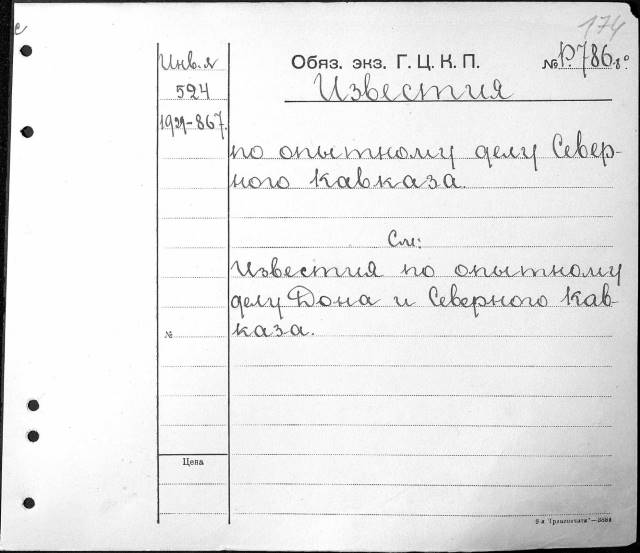 174
Инв. №
524
1929-867.
Обяз. экз. Г. Ц. К. П.
№ Р.786.8°
Известия
по опытному делу Север-
ного Кавказа.
См:
Известия по опытному
делу Дона и Северного Кав-
каза.
№
Цена